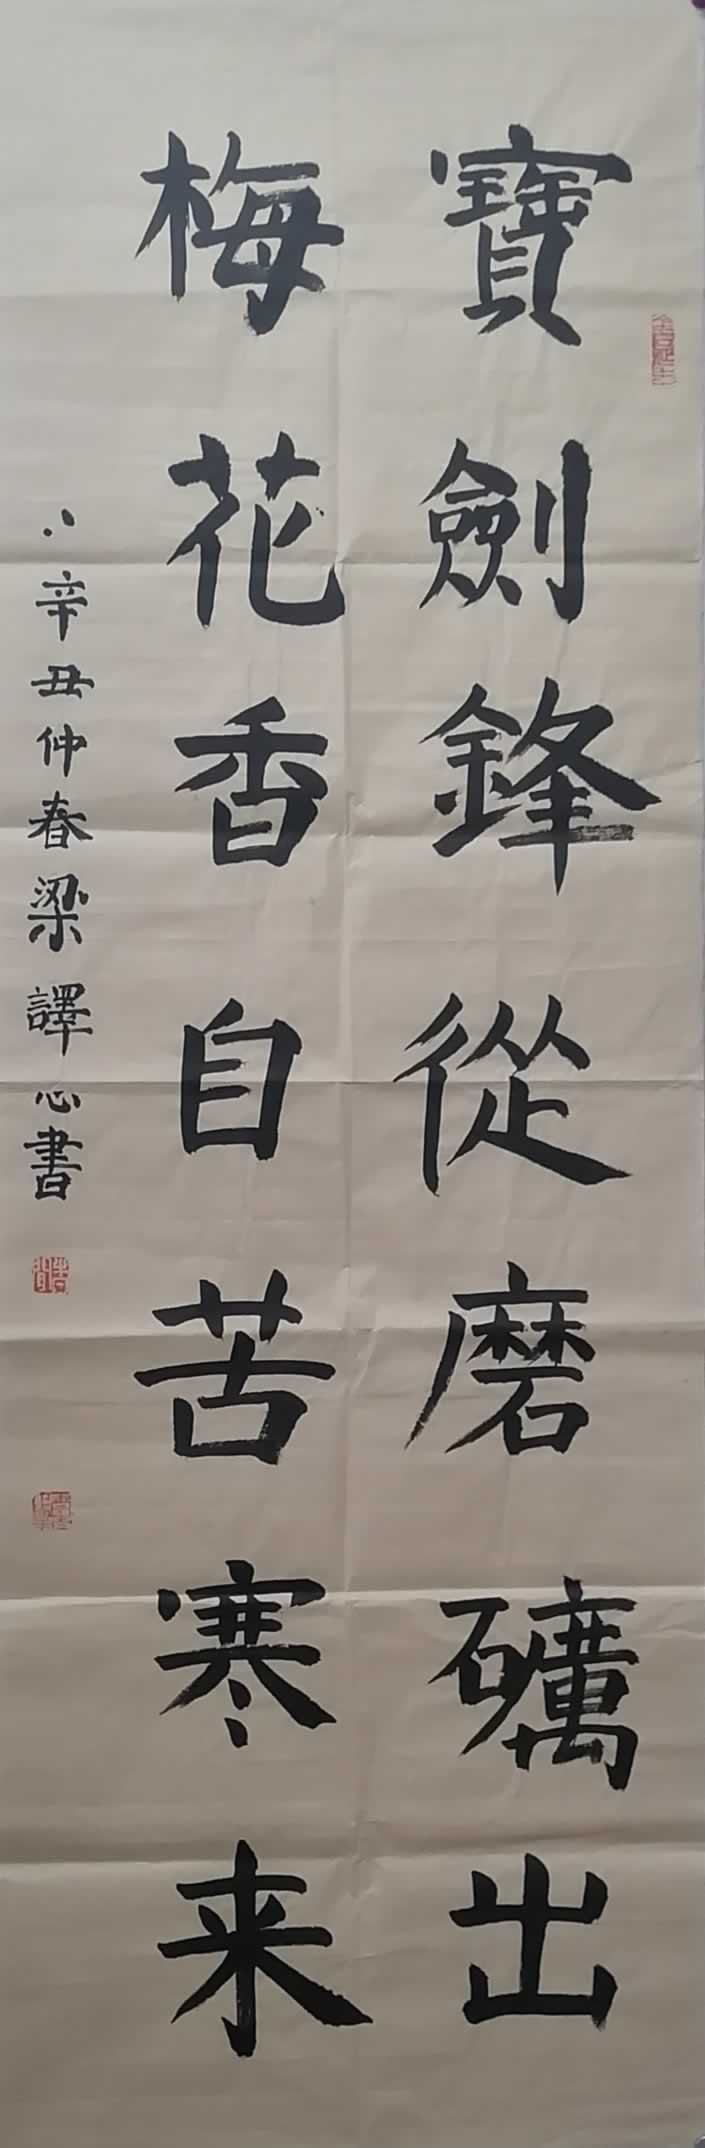 寶劍鋒從磨礪出
梅花香自苦寒来
辛丑仲春梁譯心書